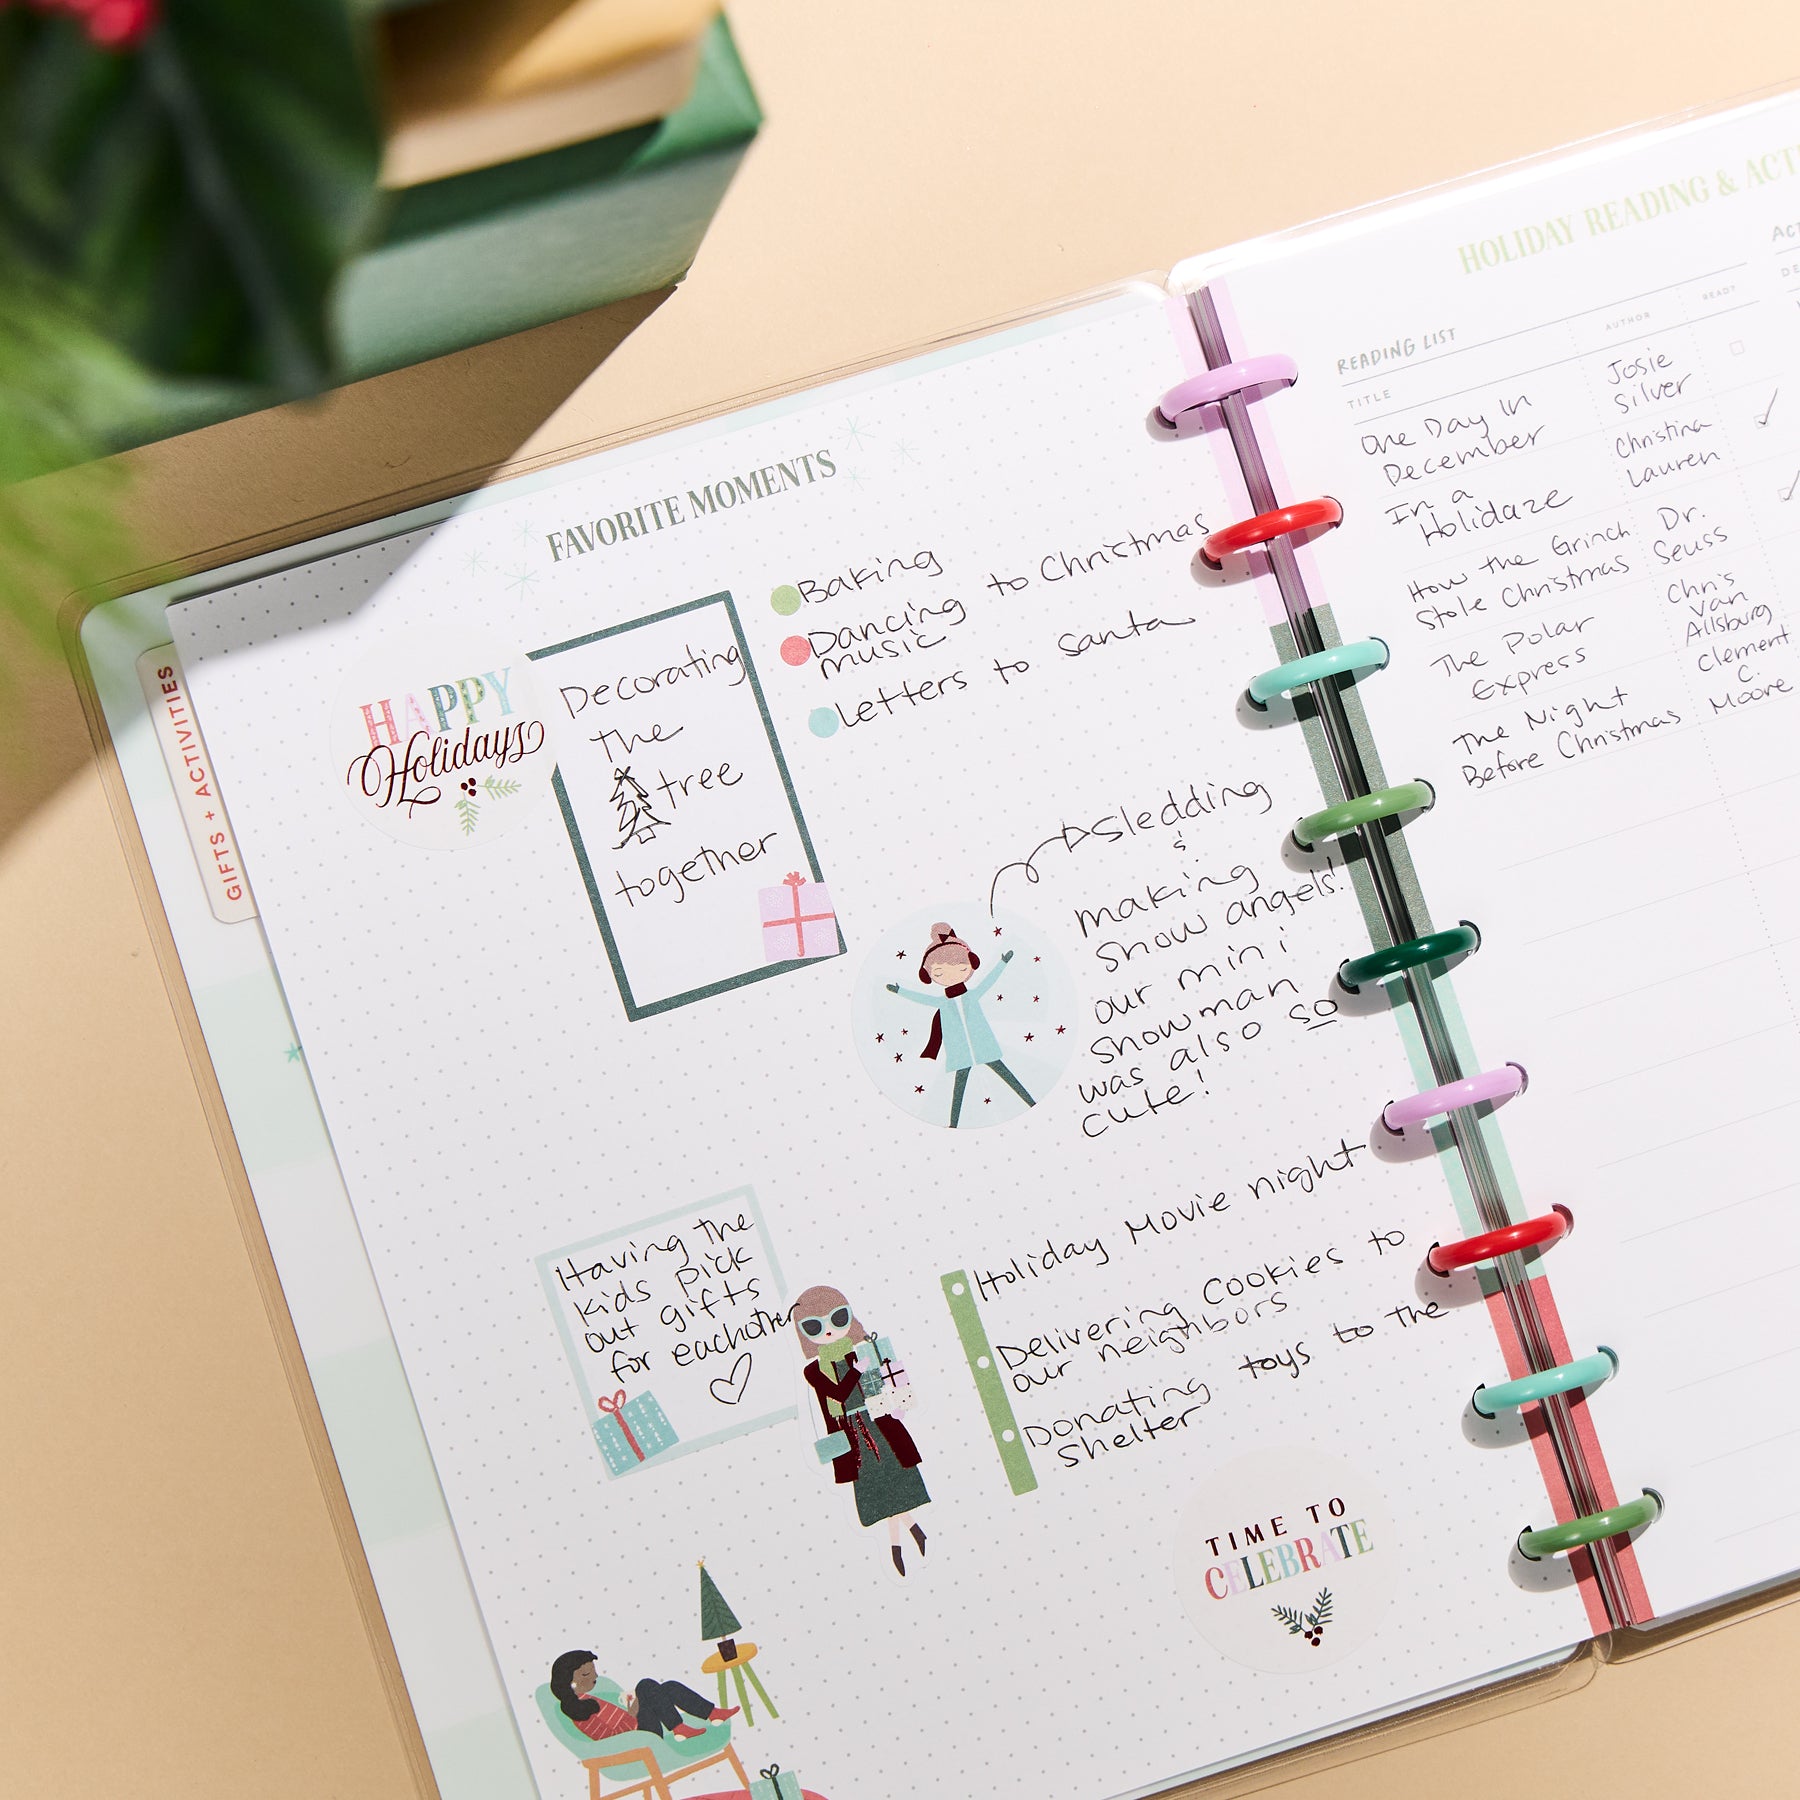 GIFTS + ACTIVITIES
FAVORITE MOMENTS
HAPPY
Holidays
Decorating
the
tree
together
Baking
Dancing to Christmas
music
Letters to Santa
Sledding
&
making
snow angels!
our mini
snowman
was also so
cute!
Having the
kids pick
out gifts
for eachother
Holiday Movie night
Delivering Cookies to
our neighbors
Donating toys to the
Shelter
TIME TO
CELEBRATE
HOLIDAY READING & ACTI
READING LIST
TITLE
AUTHOR
READ?
One Day in
December
Josie
Silver
In a
Holidaze
Christina
Lauren
How the Grinch
Stole Christmas
Dr.
Seuss
The Polar
Express
Chris
Van
Allsburg
The Night
Before Christmas
Clement
C.
Moore
ACT
DE